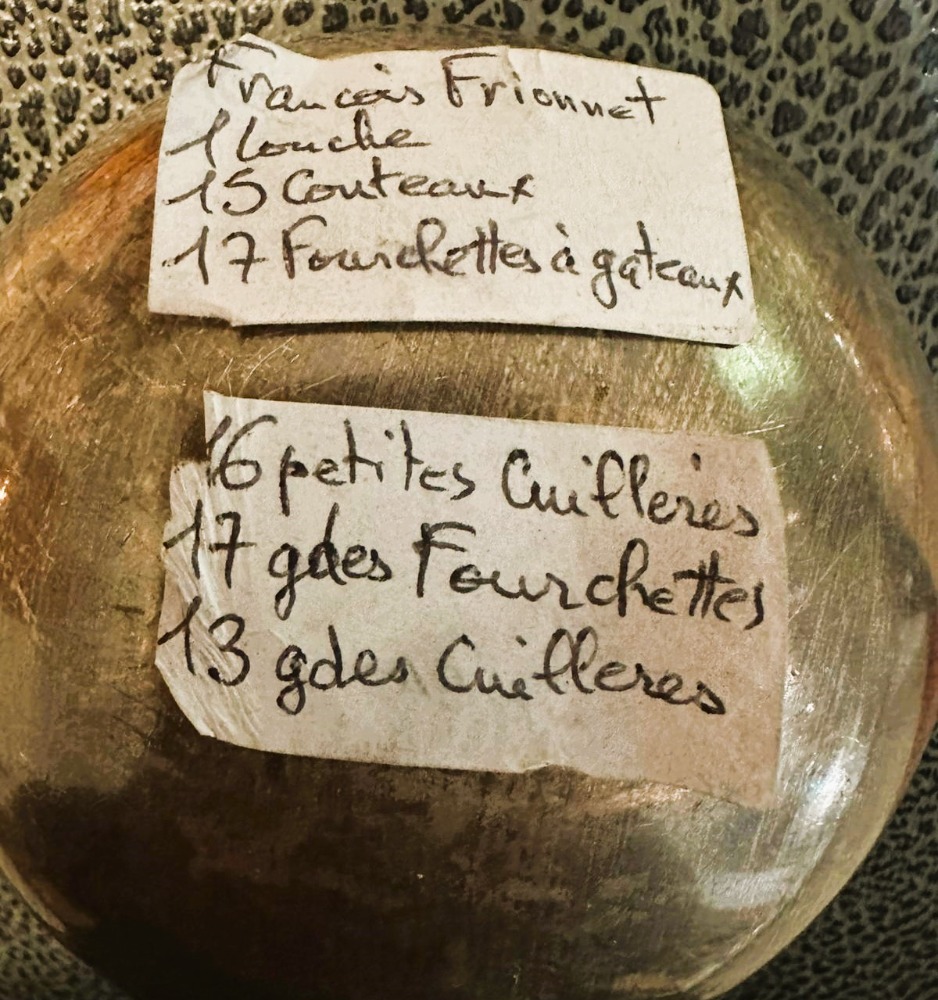 François Frionnet
1 Louche
15 Couteaux
17 Fourchettes à gateaux
16 petites Cuillères
17 gdes Fourchettes
13 gdes Cuilleres